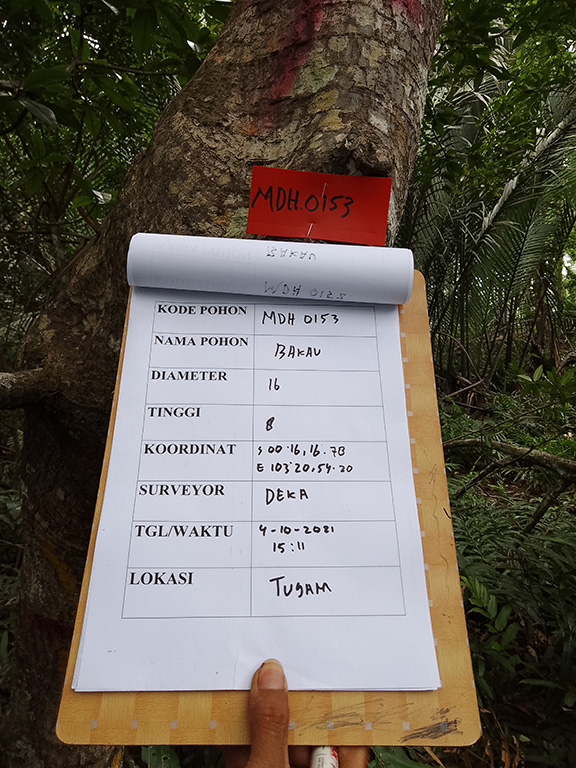 MDH.0153
KODE POHON MDH 0153
NAMA POHON BAKAU
DIAMETER 16
TINGGI 8
KOORDINAT S 00.16,16.78
E 103.20,54.20
SURVEYOR DEKA
TGL/WAKTU 4-10-2021
15:11
LOKASI TUGAM